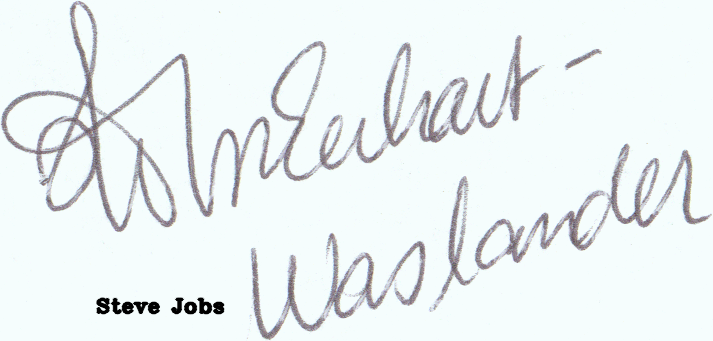 Erhart-
Waslander
Steve Jobs